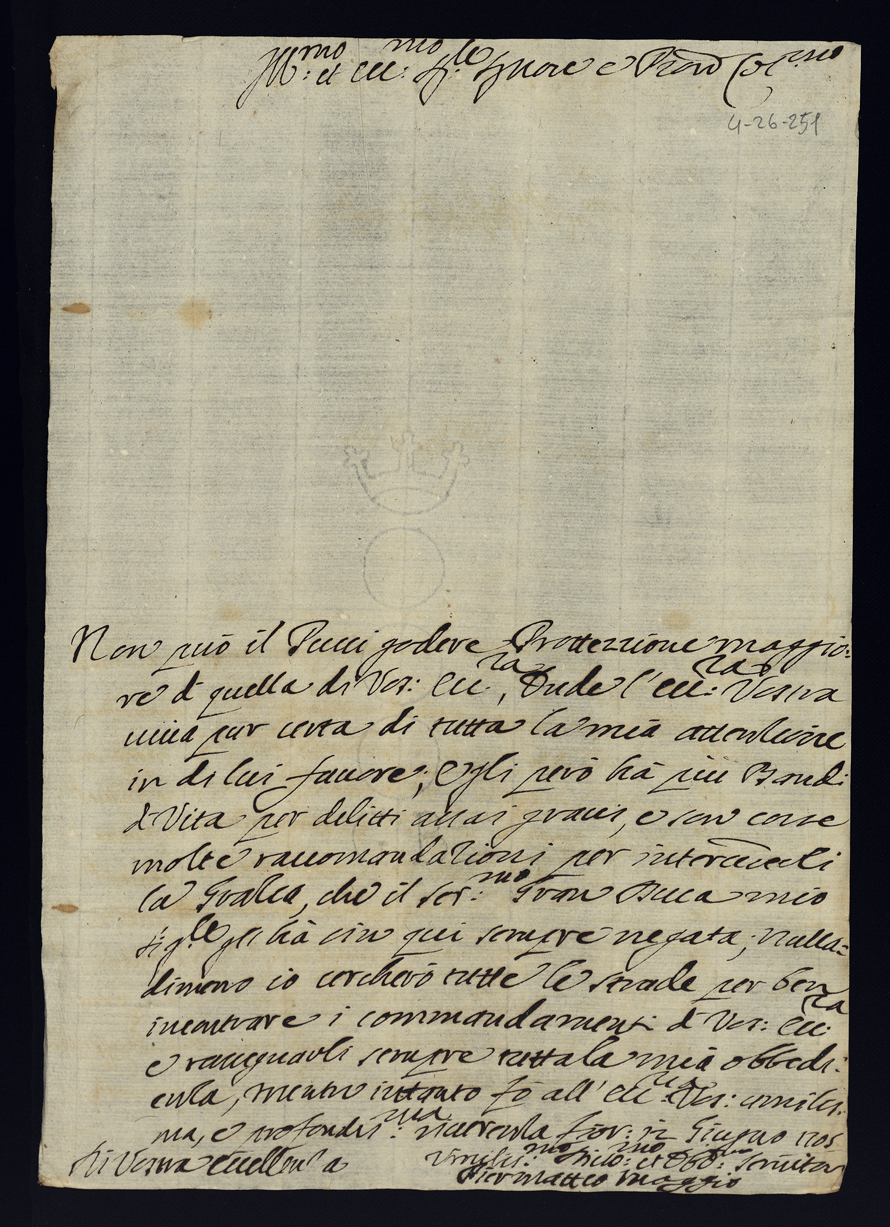 Ill.mo et Ecc:mo Sig.le Signore e Pron Col.mo
4-26-251
Non può il Pucci godere Protezzione maggio:
re di quella di Vos: Ecc:za, Onde l'Ecc:za Vostra
viva pur certa di tutta la mia attenzione
in di lui favore; Egli però hà più Bandi
di Vita per delitti assai gravi, e son corse
molte raccomandazioni per intercederli
la Grazia, che il Ser:mo Gran Duca mio
Sig.le gli hà sin qui sempre negata; Nulla=
dimeno io cercherò tutte le strade per ben
incontrare i commandamenti di Vos: Ecc:za
e rassegnarli sempre tutta la mia obbedi:
enza, mentre intanto fò all'Ecc:za Vos: umiliss:
ma, e profondis:ma riverenza Fior: 12 Giugno 1705
Di Vostra Eccellenza
Umilis:mo Divo:mo et Obb:mo Servitor
Piermatteo Maggio